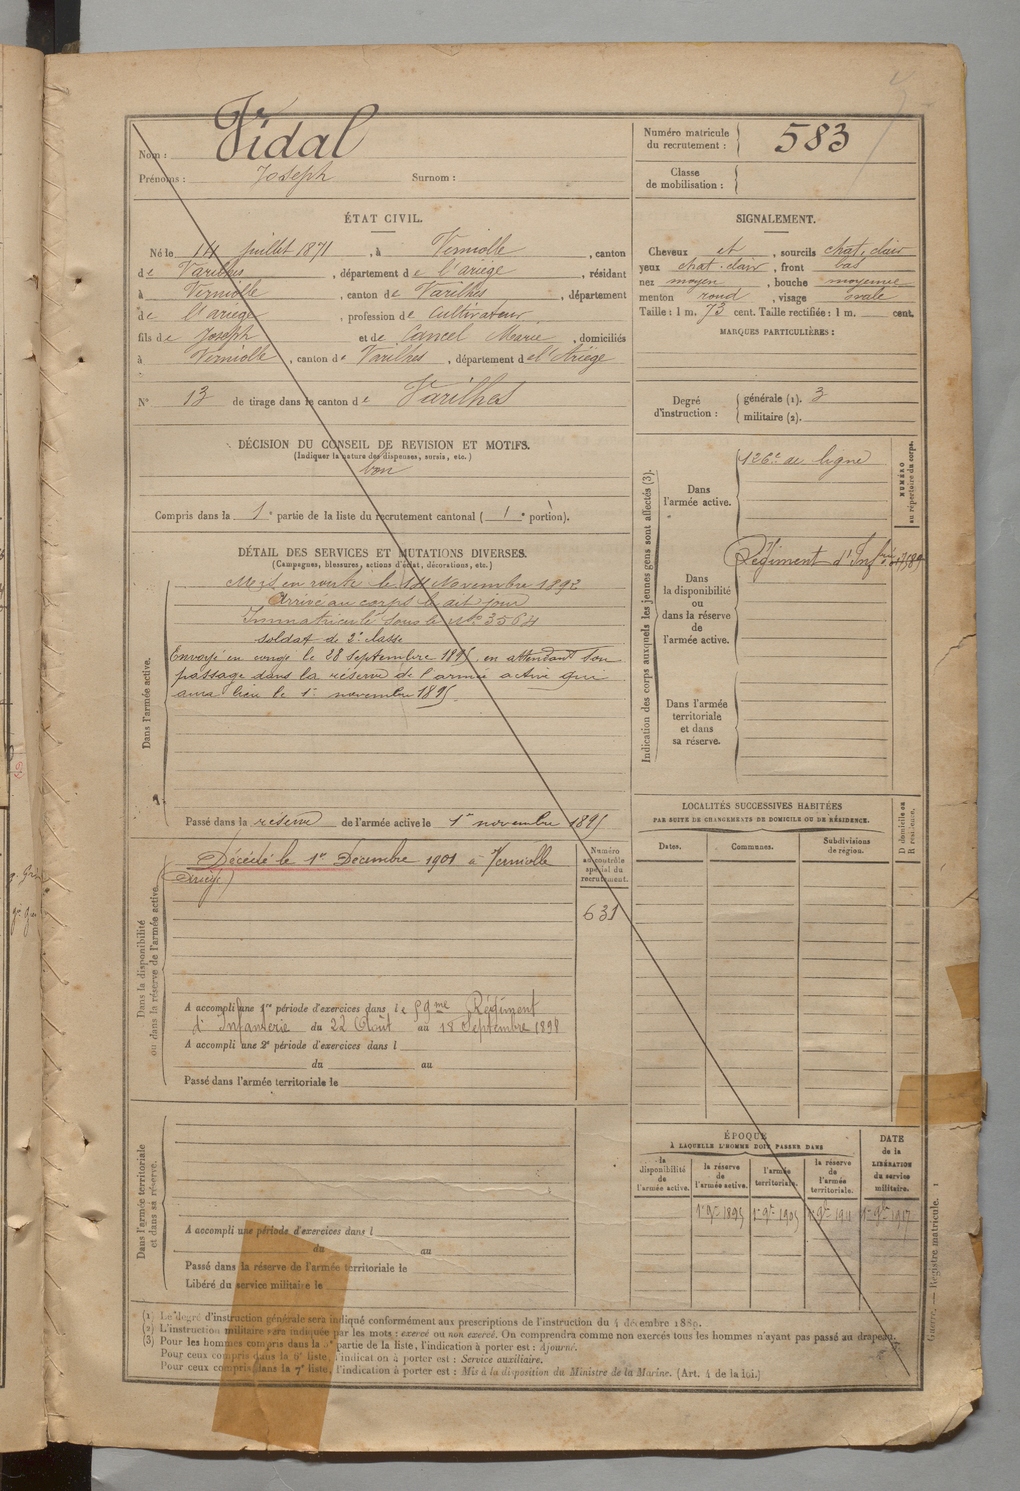 Nom : Vidal
Prénoms : Joseph Surnom :
Numéro matricule du recrutement : 583
Classe de mobilisation :
ÉTAT CIVIL.
Né le 14 Juillet 1871, à Verniolle, canton
de Varilhes, département de l'ariège, résidant
à Verniolle, canton de Varilhes, département
de l'ariège, profession de Cultivateur
fils de Joseph et de Cancel Marie, domiciliés
à Verniolle, canton de Varilhes, département de l'Ariège
N° 13 de tirage dans le canton de Varilhes
SIGNALEMENT.
Cheveux et, sourcils chat. clair
yeux chat. clair, front bas
nez moyen, bouche moyenne
menton rond, visage ovale
Taille : 1 m. 73 cent. Taille rectifiée : 1 m. cent.
MARQUES PARTICULIÈRES :
Degré d'instruction : générale (1). 3
militaire (2).
DÉCISION DU CONSEIL DE REVISION ET MOTIFS.
(Indiquer la nature des dispenses, sursis, etc.)
bon
Compris dans la 1e partie de la liste du recrutement cantonal (1e portion).
DÉTAIL DES SERVICES ET MUTATIONS DIVERSES.
(Campagnes, blessures, actions d'éclat, décorations, etc.)
Dans l'armée active.
Mis en route le 14 Novembre 1892
Arrivé au corps le dit jour
Immatriculé sous le No 3564
soldat de 2e classe
Envoyé en congé le 28 Septembre 1895, en attendant son
passage dans la réserve de l'armée active qui
aura lieu le 1er novembre 1895.
Passé dans la réserve de l'armée active le 1er novembre 1895
Indication des corps auxquels les jeunes gens sont affectés (3).
NUMÉRO au répertoire du corps.
Dans l'armée active.
126e de ligne
Dans la disponibilité ou dans la réserve de l'armée active.
Régiment d'Infrie
Dans l'armée territoriale et dans sa réserve.
Dans la disponibilité ou dans la réserve de l'armée active.
Décédé le 1er Décembre 1901 à Verniolle
(Ariège)
Numéro au contrôle spécial du recrutement.
631
A accompli une 1re période d'exercices dans le 59me Régiment
d'Infanterie du 22 Août au 18 Septembre 1898
A accompli une 2e période d'exercices dans l
du au
Passé dans l'armée territoriale le
LOCALITÉS SUCCESSIVES HABITÉES
PAR SUITE DE CHANGEMENTS DE DOMICILE OU DE RÉSIDENCE.
Dates. Communes. Subdivisions de région. D domicile ou R résidence.
Dans l'armée territoriale et dans sa réserve.
A accompli une période d'exercices dans l
du au
Passé dans la réserve de l'armée territoriale le
Libéré du service militaire le
ÉPOQUE
À LAQUELLE L'HOMME DOIT PASSER DANS
la disponibilité de l'armée active.
la réserve de l'armée active.
l'armée territoriale.
la réserve de l'armée territoriale.
DATE de la LIBÉRATION du service militaire.
1er 9bre 1895 1er 9bre 1905 1er 9bre 1911 1er 9bre 1917
(1) Le degré d'instruction générale sera indiqué conformément aux prescriptions de l'instruction du 4 décembre 1889.
(2) L'instruction militaire sera indiquée par les mots : exercé ou non exercé. On comprendra comme non exercés tous les hommes n'ayant pas passé au drapeau.
(3) Pour les hommes compris dans la partie de la liste, l'indication à porter est : Ajourné.
Pour ceux compris dans la 6e liste, l'indication à porter est : Service auxiliaire.
Pour ceux compris dans la 7e liste, l'indication à porter est : Mis à la disposition du Ministre de la Marine. (Art. 4 de la loi.)
Guerre. — Registre matricule. 1